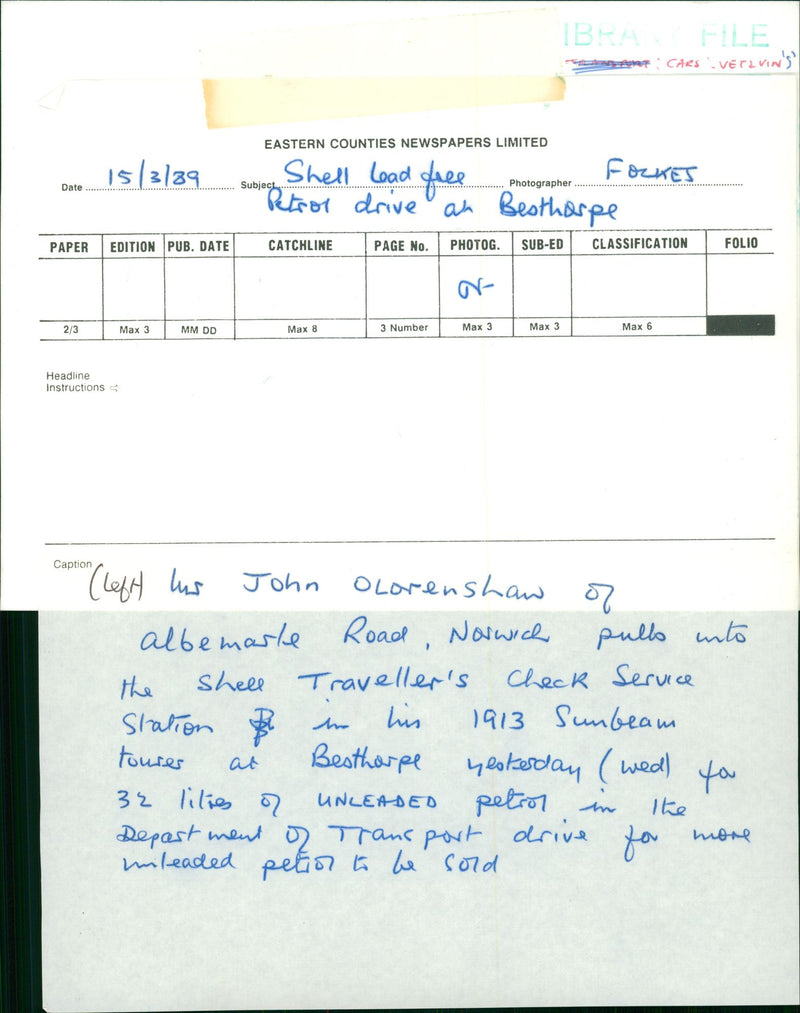 LIBRARY FILE
TRANSPORT : CARS : VET & VIN'S
EASTERN COUNTIES NEWSPAPERS LIMITED
Date 15/3/89 Subject Shell lead free Photographer
Petrol drive at Besthorpe
PAPER EDITION PUB. DATE CATCHLINE PAGE No. PHOTOG. SUB-ED CLASSIFICATION FOLIO
2/3 Max 3 MM DD Max 8 3 Number Max 3 Max 3 Max 6
Headline
Instructions ⇨
Caption (left) Mr John OLorenshaw of
Albemarle Road, Norwich pulls into
the Shell Traveller's Check Service
Station in his 1913 Sunbeam
tourer at Besthorpe yesterday (wed) for
32 litres of UNLEADED petrol in the
Department of Transport drive for more
unleaded petrol to be sold